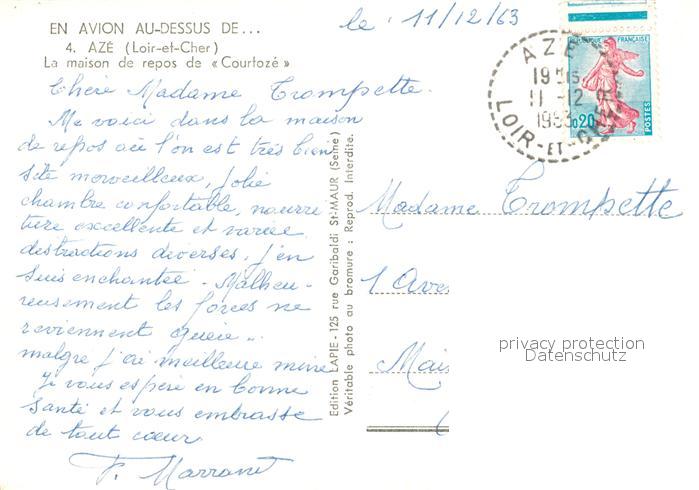 EN AVION AU-DESSUS DE...
4. AZÉ (Loir-et-Cher)
La maison de repos de « Courtozé »
le 11/12/63
Chère Madame Trompette.
Me voici dans la maison
de repos où l'on est très bien
site merveilleux, jolie
chambre confortable, nourri
ture excellente et variée
distractions diverses, j'en
suis enchantée. Malheu-
reusement les forces ne
reviennent guère..
malgré j'ai meilleure mine
Je vous espère en bonne
santé et vous embrasse
de tout cœur.
Edition LAPIE - 125 rue Garibaldi St-MAUR (Seine)
Véritable photo au bromure : Reprod. Interdite.
AZÉ
11-12
1963
LOIR-ET-
RÉPUBLIQUE FRANÇAISE
0,20
POSTES
Madame Trompette
1 Ave
Mai
privacy protection
Datenschutz